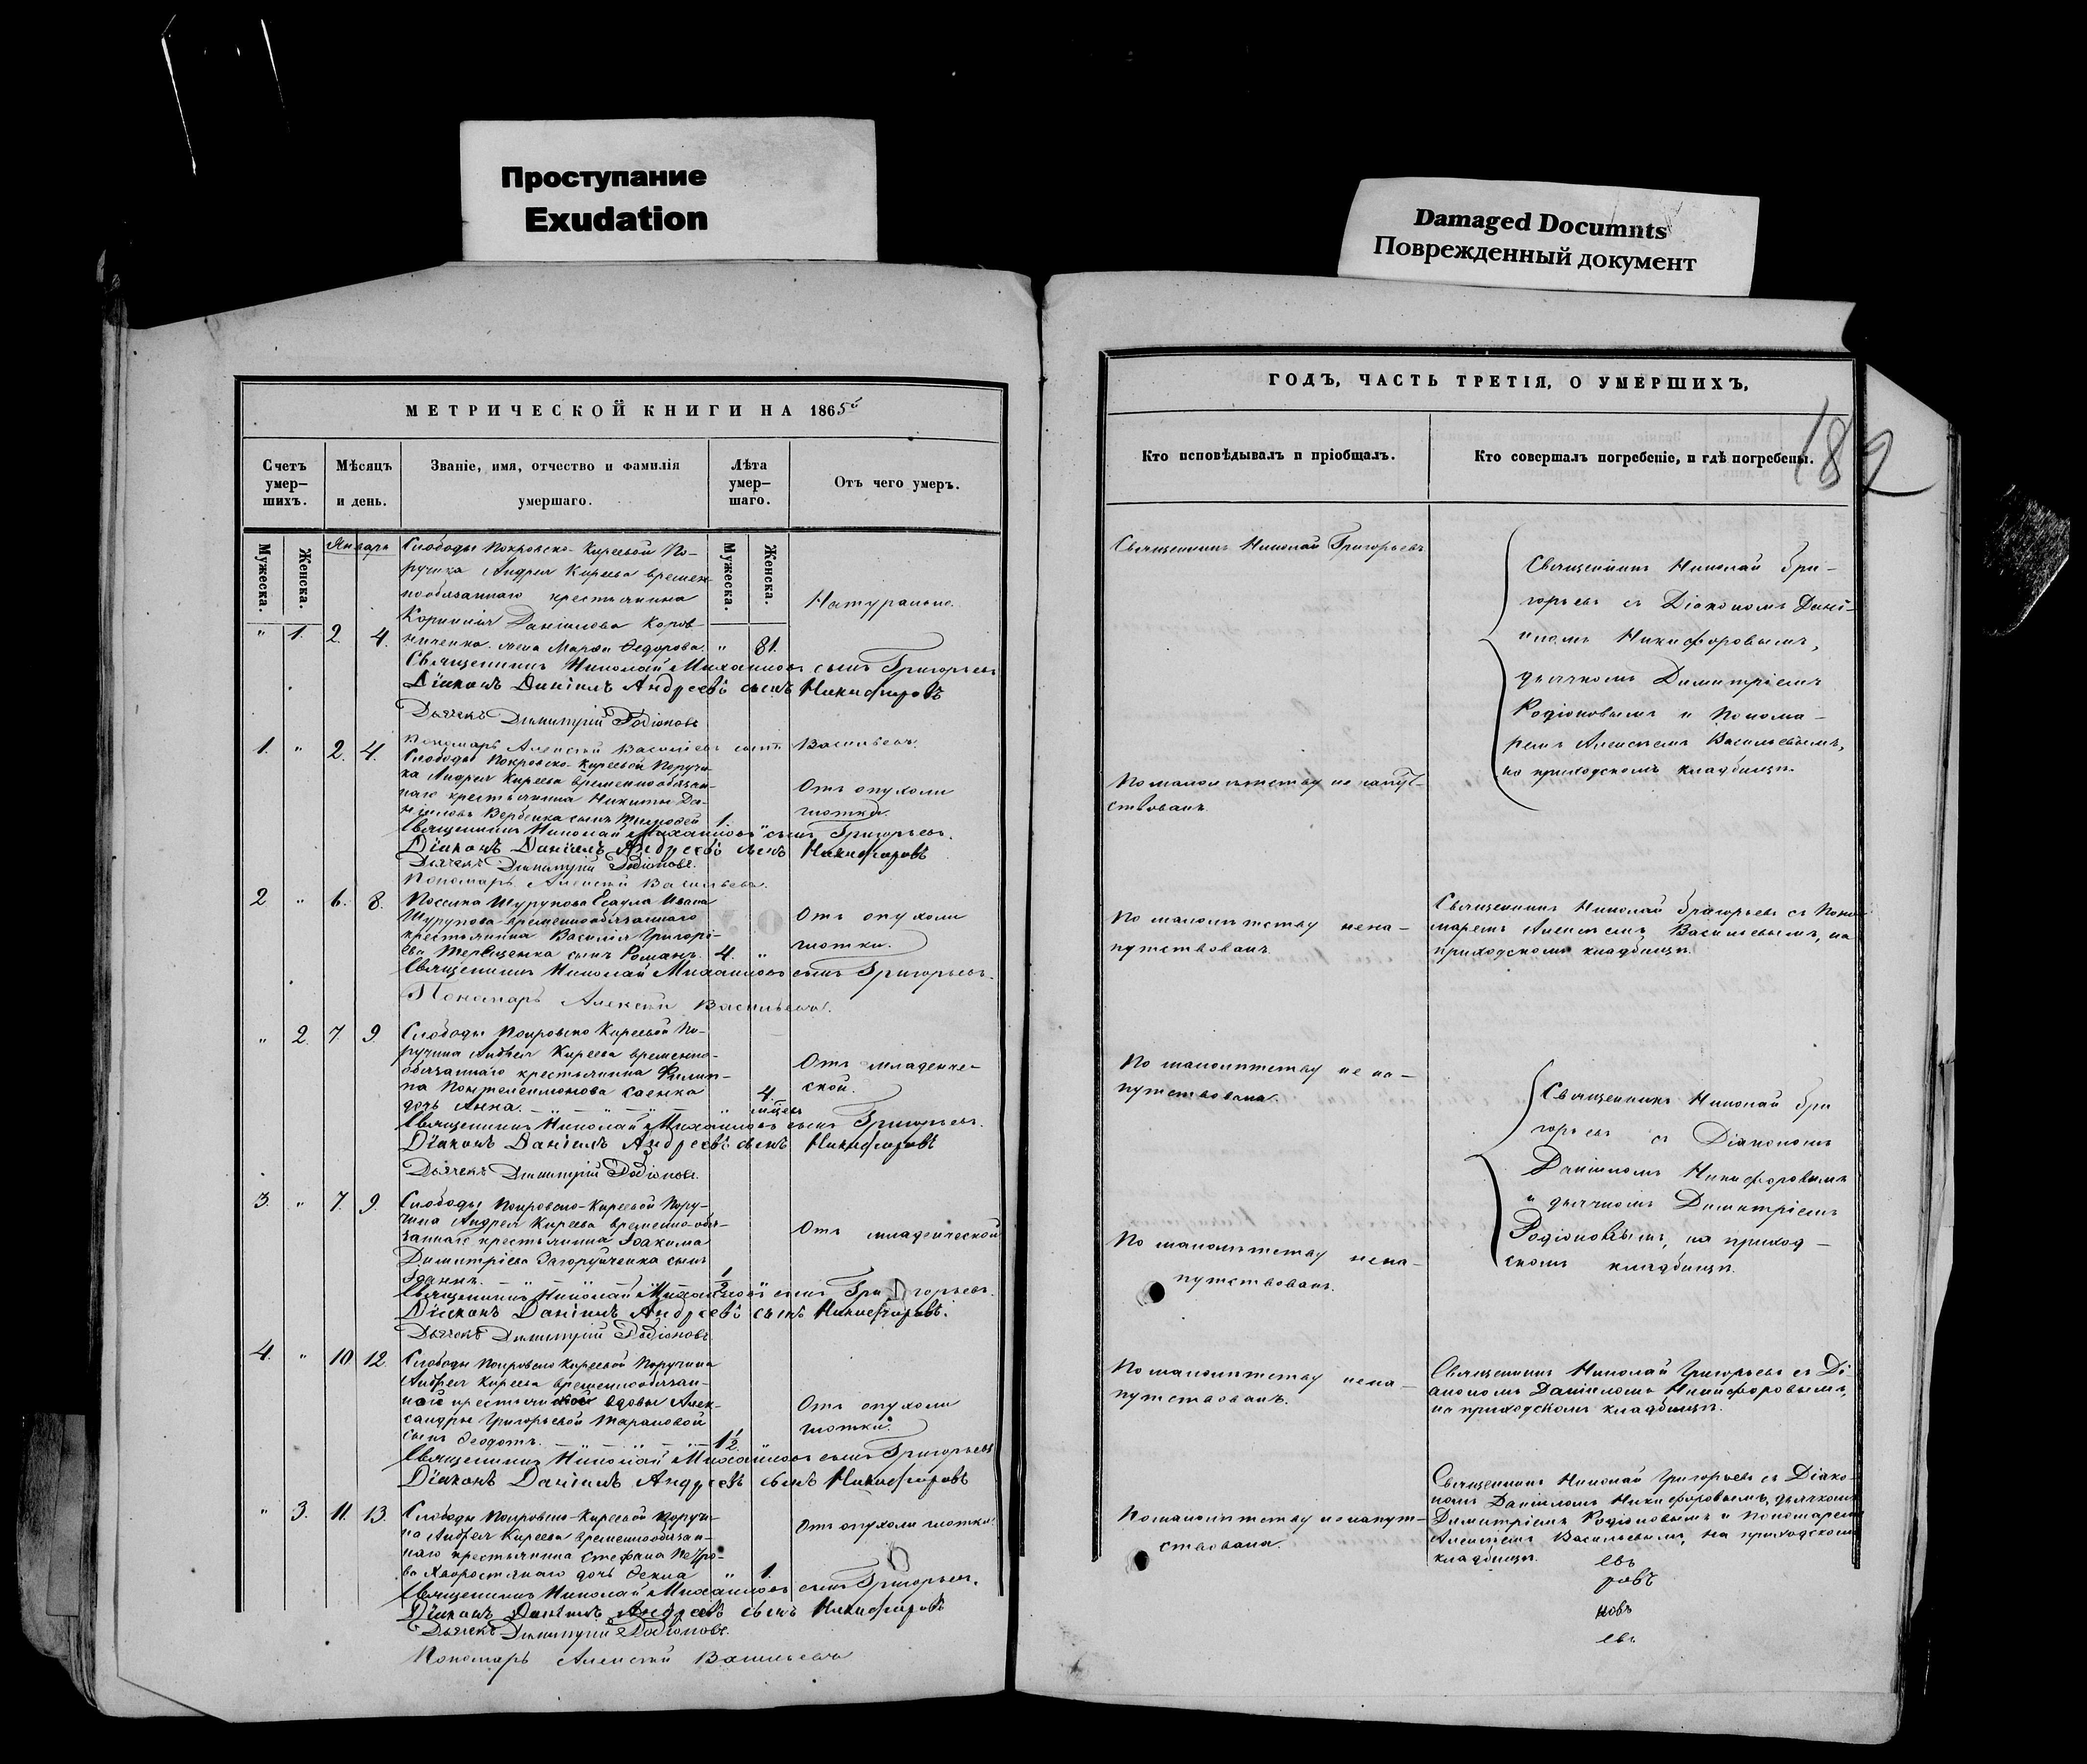 Проступание
Exudation
Damaged Documnts
Поврежденный документ
МЕТРИЧЕСКОЙ КНИГИ НА 1865й
Счетъ умер-шихъ.
Мѣсяцъ и день.
Званіе, имя, отчество и фамилія умершаго.
Лѣта умер-шаго.
Отъ чего умеръ.
Мужеска.
Женска.
Мужеска.
Женска.
Январь
Слободы Покровско-Киреевой По-
ручика Андрея Киреева времен-
нообязаннаго крестьянина
Корнилія Даніилова Коров-
" 1. 2. 4. ниченка жена Марѳа Ѳедорова. " 81.
Натурально.
Священникъ Николай Михаиловъ сынъ Григорьевъ
Діаконъ Даніилъ Андреевъ сынъ Никифоровъ
Дьячекъ Димитрій Родіоновъ
Пономарь Алексѣй Васильевъ сынъ Васильевъ.
1. " 2. 4. Слободы Покровско-Киреевой Поручи-
ка Андрея Киреева временнообязан-
наго крестьянина Никиты Да-
ниловъ Вербенка сынъ Тимоѳей 1. "
Отъ опухоли
глотки.
Священникъ Николай Михаиловъ сынъ Григорьевъ.
Діаконъ Даніилъ Андреевъ сынъ Никифоровъ
Дьячекъ Димитрій Родіоновъ.
Пономарь Алексѣй Васильевъ.
2 " 6. 8. Поселка Шурупова Есаула Ивана
Шурупова временнообязаннаго
крестьянина Василія Григорі-
ева Терещенка сынъ Романъ. 4. "
Отъ опухоли
глотки.
Священникъ Николай Михаиловъ сынъ Григорьевъ.
Пономарь Алексѣй Васильевъ.
" 2. 7. 9. Слободы Покровско Киреевой По-
ручика Андрея Киреева временно-
обязаннаго крестьянина Филип-
па Понтелеимонова Саенка
дочь Анна. " 4. мѣсяц.
Отъ младенче-
ской.
Священникъ Николай Михаиловъ сынъ Григорьевъ.
Діаконъ Даніилъ Андреевъ сынъ Никифоровъ
Дьячекъ Димитрій Родіоновъ.
3. " 7. 9. Слободы Покровско-Киреевой Пору-
чика Андрея Киреева временно-обя-
заннаго крестьянина Іоакима
Димитріева Загоруйченка сынъ
Іоаннъ. 1/2 "
Отъ младенческой
Священникъ Николай Михаиловъ сынъ Григорьевъ.
Діаконъ Даніилъ Андреевъ сынъ Никифоровъ.
Дьячекъ Димитрій Родіоновъ.
4. " 10 12. Слободы Покровско Киреевой Поручика
Андрея Киреева временнообязан-
ной вдовы Алек-
сандры Григорьевой Тарановой
сынъ Ѳеодотъ. 1 1/2. "
Отъ опухоли
глотки.
Священникъ Николай Михаиловъ сынъ Григорьевъ
Діаконъ Даніилъ Андреевъ сынъ Никифоровъ
" 3. 11. 13. Слободы Покровско-Киреевой Поручи-
ка Андрея Киреева временнообязан-
наго крестьянина Стефана Петро-
ва Хворостянаго дочь Ѳекла " 1.
Отъ опухоли глотки.
Священникъ Николай Михаиловъ сынъ Григорьевъ.
Діаконъ Даніилъ Андреевъ сынъ Никифоровъ
Дьячекъ Димитрій Родіоновъ.
Пономарь Алексѣй Васильевъ
ГОДЪ, ЧАСТЬ ТРЕТІЯ, О УМЕРШИХЪ,
182
Кто исповѣдывалъ и пріобщалъ.
Кто совершалъ погребеніе, и гдѣ погребены.
Священникъ Николай Григорьевъ
Священникъ Николай Гри-
горьевъ съ Діакономъ Дані-
иломъ Никифоровымъ,
дьячкомъ Димитріемъ
Родіоновымъ и Понома-
ремъ Алексѣемъ Васильевымъ,
на приходскомъ кладбищѣ.
По малолѣтству не напут-
ствованъ.
По малолѣтству нена-
путствованъ.
Священникъ Николай Григорьевъ съ Поно-
маремъ Алексѣемъ Васильевымъ, на
приходскомъ кладбищѣ.
По малолѣтству не на-
путствована.
Священникъ Николай Гри
горьевъ съ Діакономъ
Даніиломъ Никифоровымъ
и дьячкомъ Димитріемъ
Родіоновымъ, на приход-
скомъ кладбищѣ.
По малолѣтству нена-
путствованъ.
По малолѣтству нена-
путствованъ.
Священникъ Николай Григорьевъ съ Ді-
акономъ Даніиломъ Никифоровымъ,
на приходскомъ кладбищѣ.
По малолѣтству ненапут-
ствована.
Священникъ Николай Григорьевъ съ Діако-
номъ Даніиломъ Никифоровымъ, дьячкомъ
Димитріемъ Родіоновымъ и пономаремъ
Алексѣемъ Васильевымъ, на приходскомъ
кладбищѣ.
евъ
ровъ
новъ
евъ